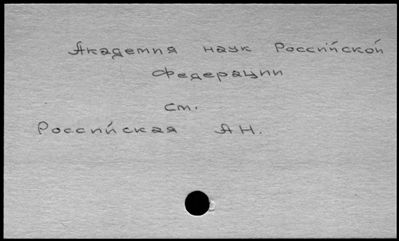 Академия наук Российской
Федерации
см.
Российская АН.